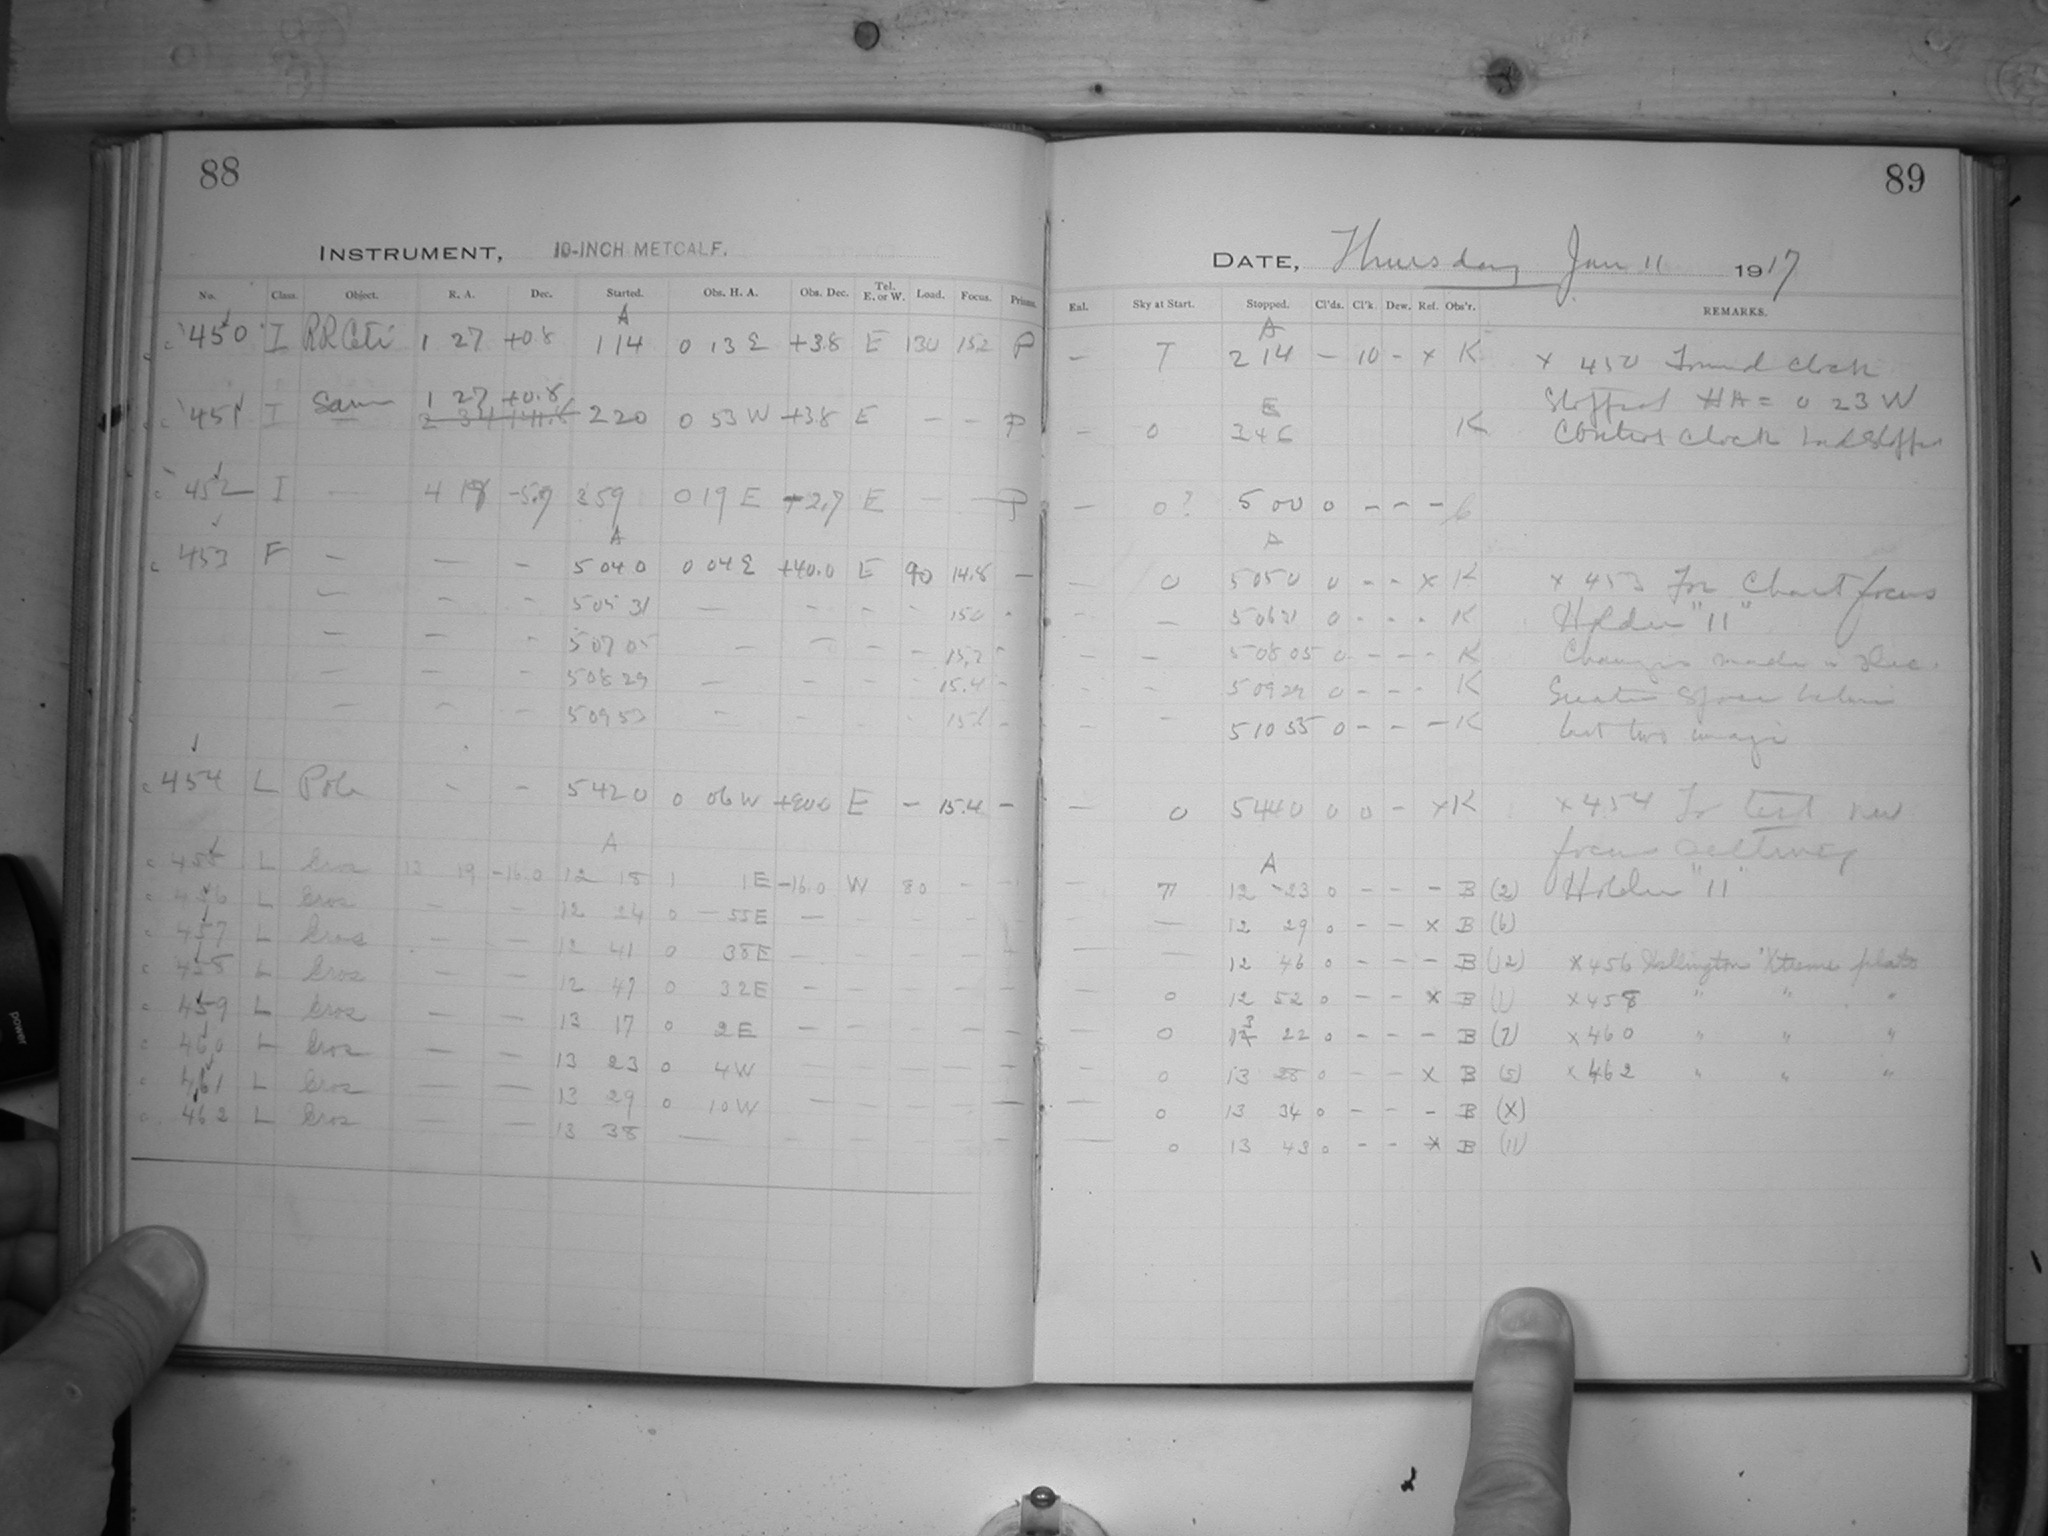 88
INSTRUMENT, 10-INCH METCALF.
No. Class. Object. R. A. Dec. Started. Obs. H. A. Obs. Dec. Tel. E. or W. Load. Focus. Prisms.
A
450 I RR Ceti 1 27 +0.8 1 14 0 13 E +3.8 E 130 15.2 P
1 27 +0.8
451 I Same 2 20 0 53 W +3.8 E — — P
452 I — 4 18 -5.9 3 59 0 19 E +2.9 E — — P
A
453 F — — — 5 04 0 0 04 E +40.0 E 90 14.8 —
— — — 5 05 31 — — — — 15.0 -
— — - 5 07 05 — — — — 15.2 -
— — — 5 08 29 — — — — 15.4 -
— — — 5 09 53 — — — — 15.6 -
454 L Pole - - 5 42 0 0 06 W +90.0 E — 15.4 —
A
455 L Eros 12 19 -16.0 12 18 1 1 E -16.0 W 80 — —
456 L Eros — — 12 24 0 — 55 E —
457 L Eros — — 12 41 0 38 E — — — — —
458 L Eros — — 12 47 0 32 E — — — — —
459 L Eros — — 13 17 0 2 E — — — — —
460 L Eros — — 13 23 0 4 W — — — — —
461 L Eros — — 13 29 0 10 W — — — — —
462 L Eros — — 13 38 — — — — — —
89
DATE, Thursday Jan 11 1917
Enl. Sky at Start. Stopped. Cl'ds. Cl'k. Dew. Ref. Obs'r. REMARKS.
A
— T 2 14 — 10 - x K x 450 Found clock
stopped HA = 0 23 W
— 0 3 46 K Control clock had stopped
— 0? 5 00 0 - - -
A
— 0 5 05 0 0 - - x K x 453 For Chart focus
— — 5 06 31 0 - - - K Holder "11"
— — 5 08 05 0 - - - K Changes made in Dec.
— — 5 09 29 0 - - - K Greater space between
— — 5 10 55 0 - - - K last two images
— 0 5 44 0 0 0 - x K x 454 To test new
focus setting
A
— 12 23 0 - - - B (2) Holder "11"
— 12 29 0 - - x B (6)
— — 12 46 0 - - - B (12) x 456 Wellington 'Xtreme plate
0 12 52 0 - - x B (1) x 458 " " "
0 13 22 0 - - - B (7) x 460 " " "
0 13 28 0 - - x B (5) x 462 " " "
— 0 13 34 0 - - - B (X)
— 0 13 43 0 - - x B (11)
power